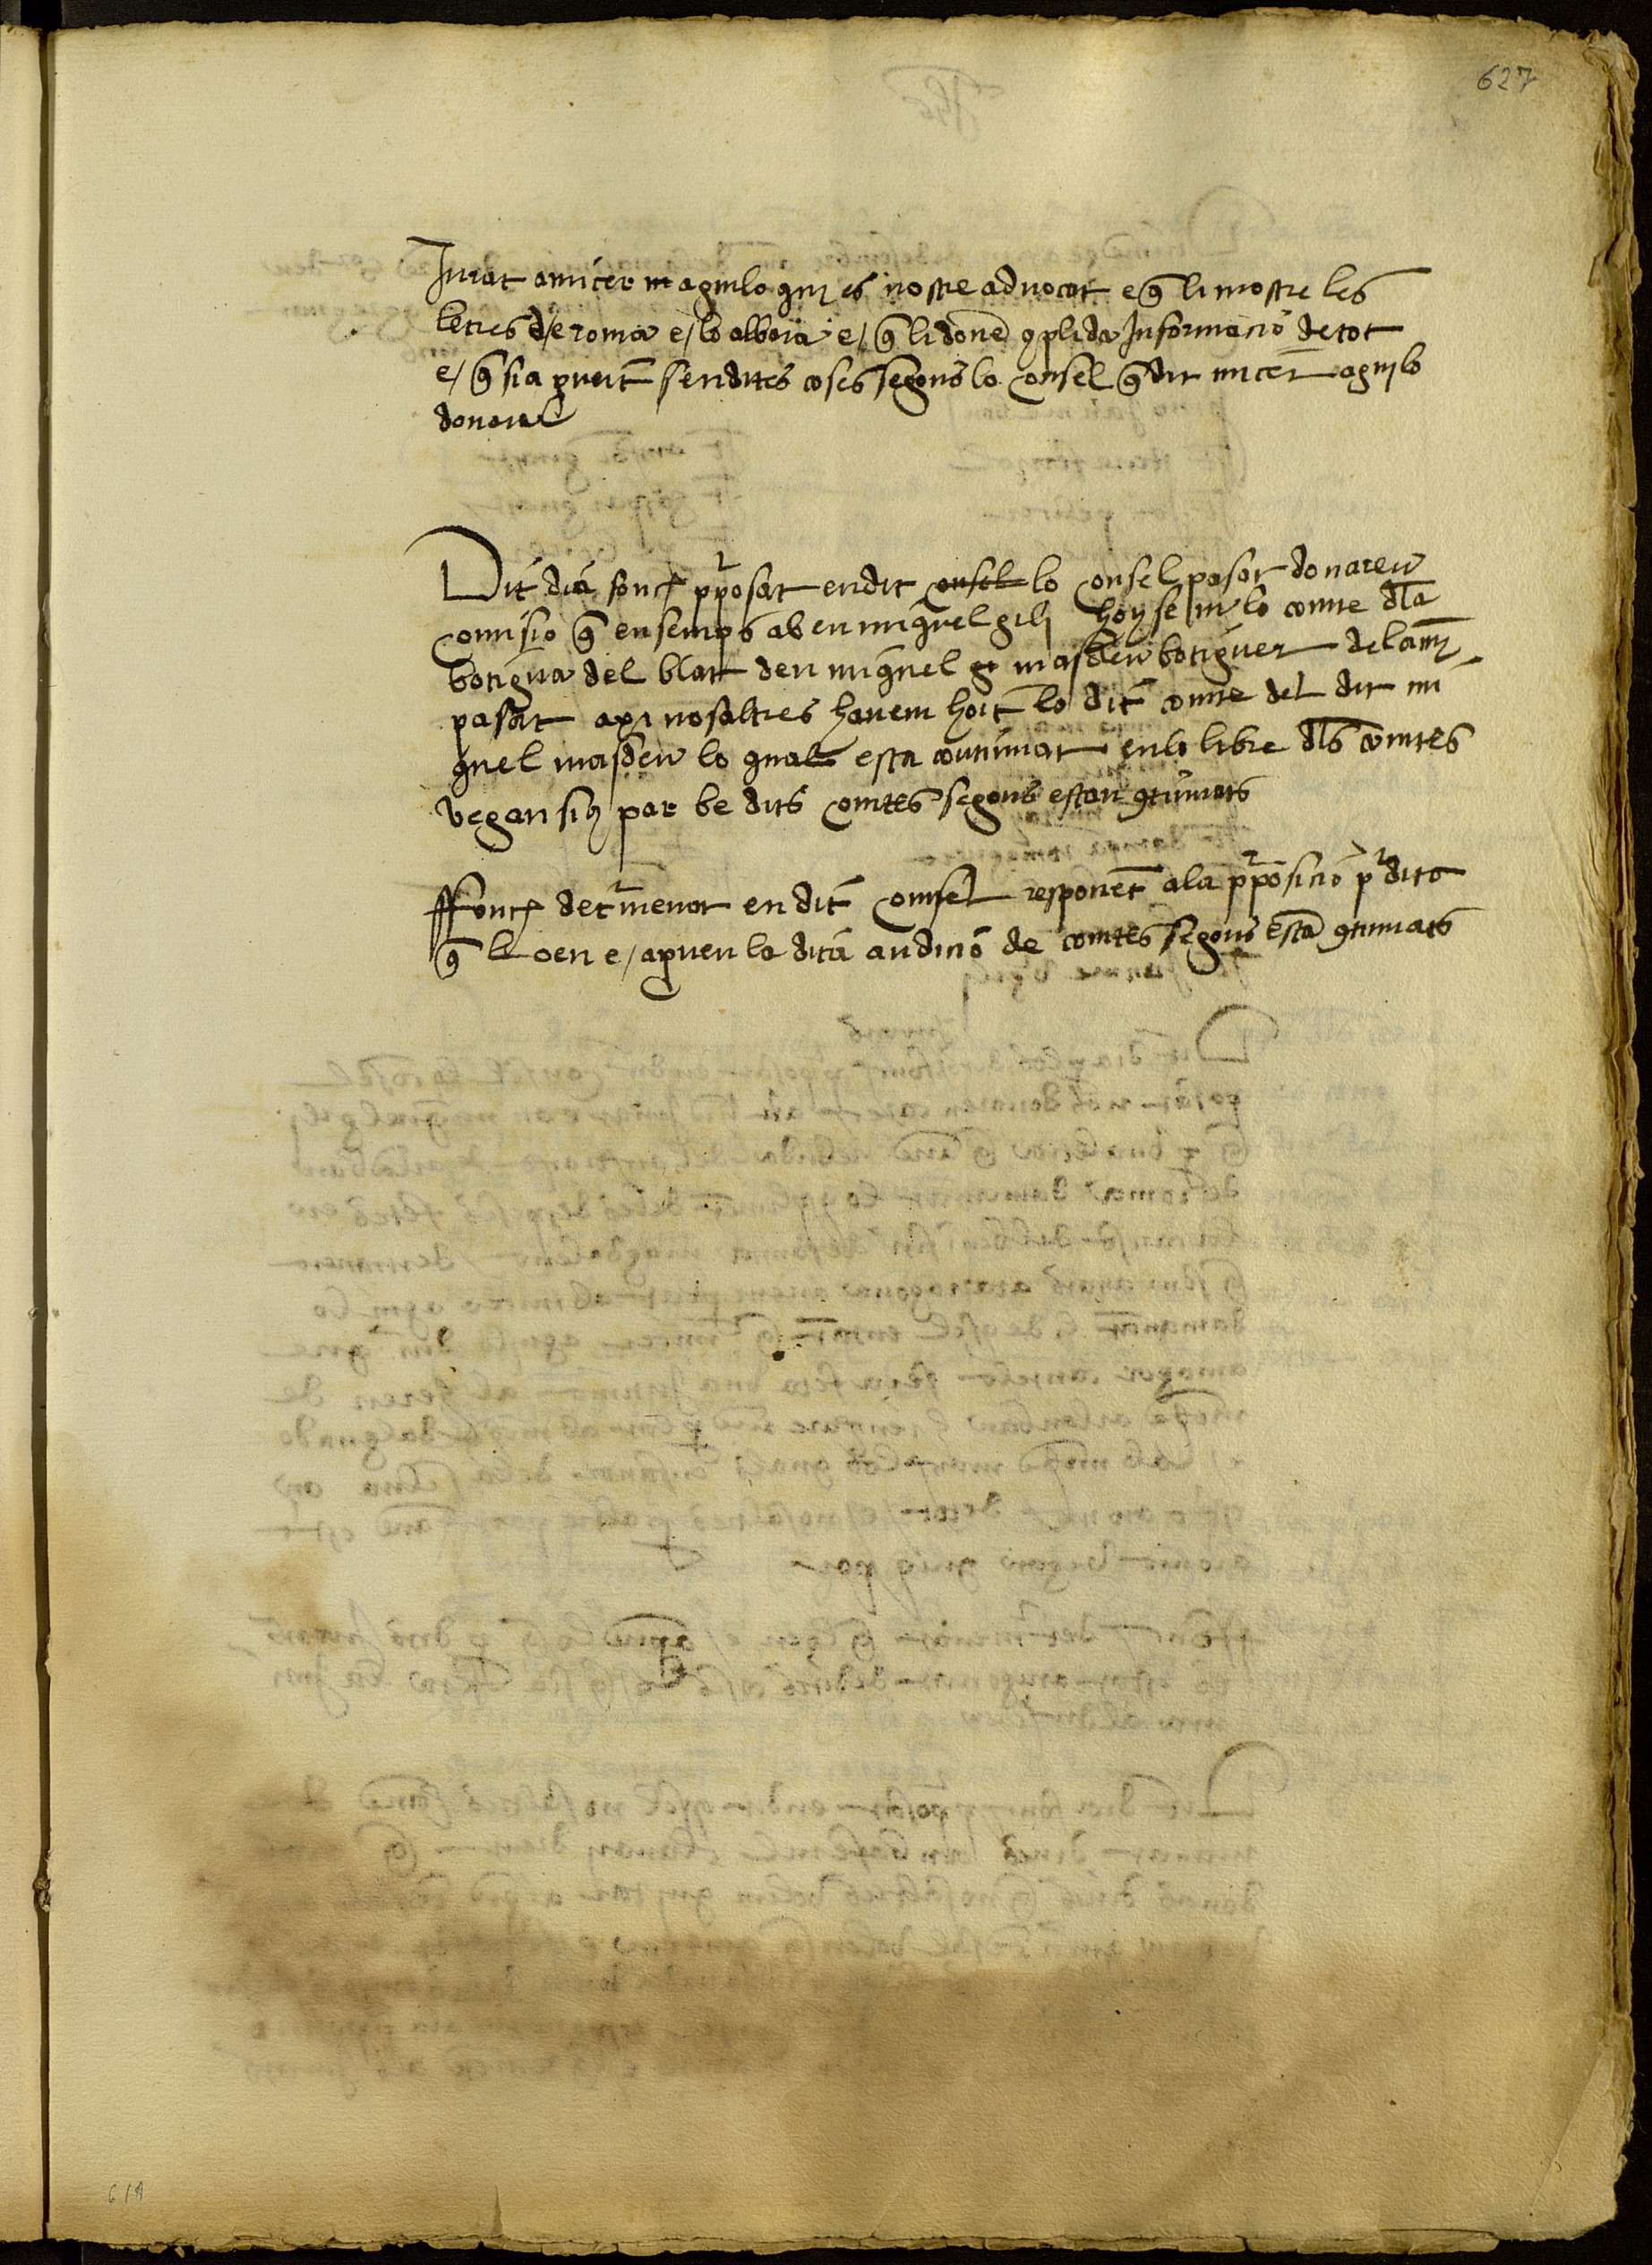 627
Jurat a micer m aguilo qui es nostre advocat e q̃ li mostre les
letres d/e roma e/ lo albara e/ q̃ li done cplida Informacio de tot
e/ q̃ sia provit sen dites coses segons lo consel q̃ dit micer aguilo
donara
Dit dia fonch pposat en dit consel lo consel pasat donareu
comisio q̃ ensemps ab en miquel gili hoysem lo comte dla
botigua del blat den miquel g masdeu botiguer del any
pasat axi nosaltres havem hoit lo dit comte del dit mi
quel masdeu lo qual esta continuat en lo libre dls comtes
vegan sius par be dits comtes segons estan continuats
Ffonch determenat en dit consel responent a la pposicio pdita
q̃ lloen e/ aproven la dita audicio de comtes segons esta continuats
619